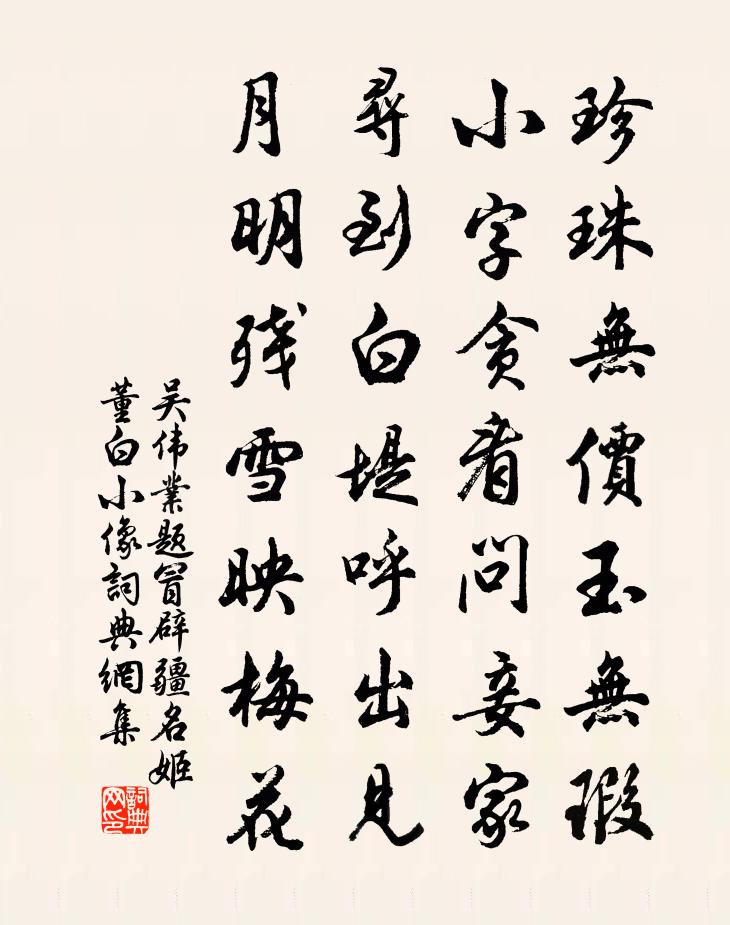 珍珠無價玉無瑕
小字贪看問妾家
尋到白堤呼出見
月明残雪映梅花
吴伟業题冒辟疆名姬
董白小像詞典網集
詞典
网印